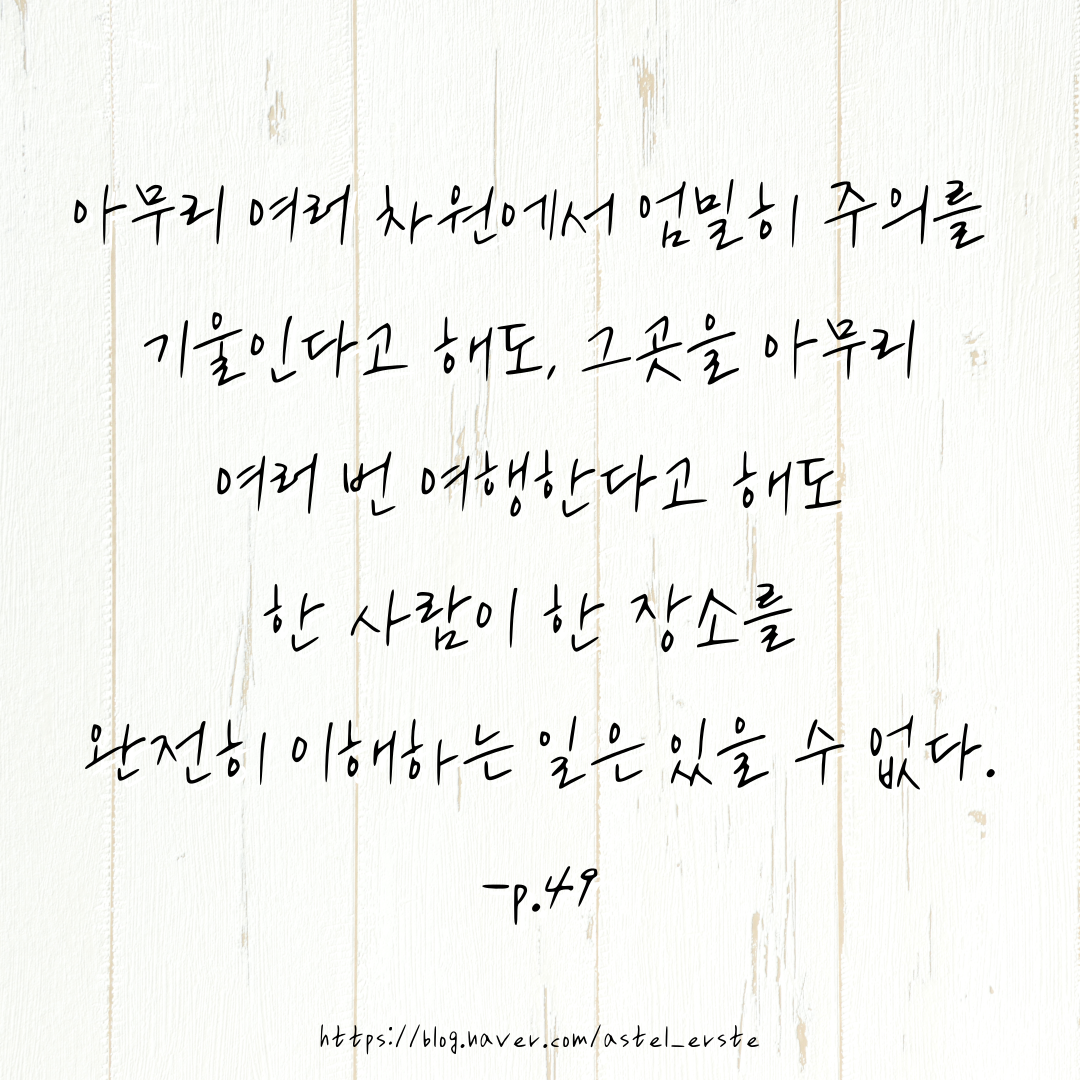 아무리 여러 차원에서 엄밀히 주의를
기울인다고 해도, 그곳을 아무리
여러 번 여행한다고 해도
한 사람이 한 장소를
완전히 이해하는 일은 있을 수 없다.
-p.49
https://blog.naver.com/astel_erste